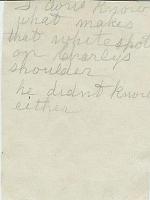 I dont know
what makes
that white spot
on Charlys
shoulder
he didn't know
either